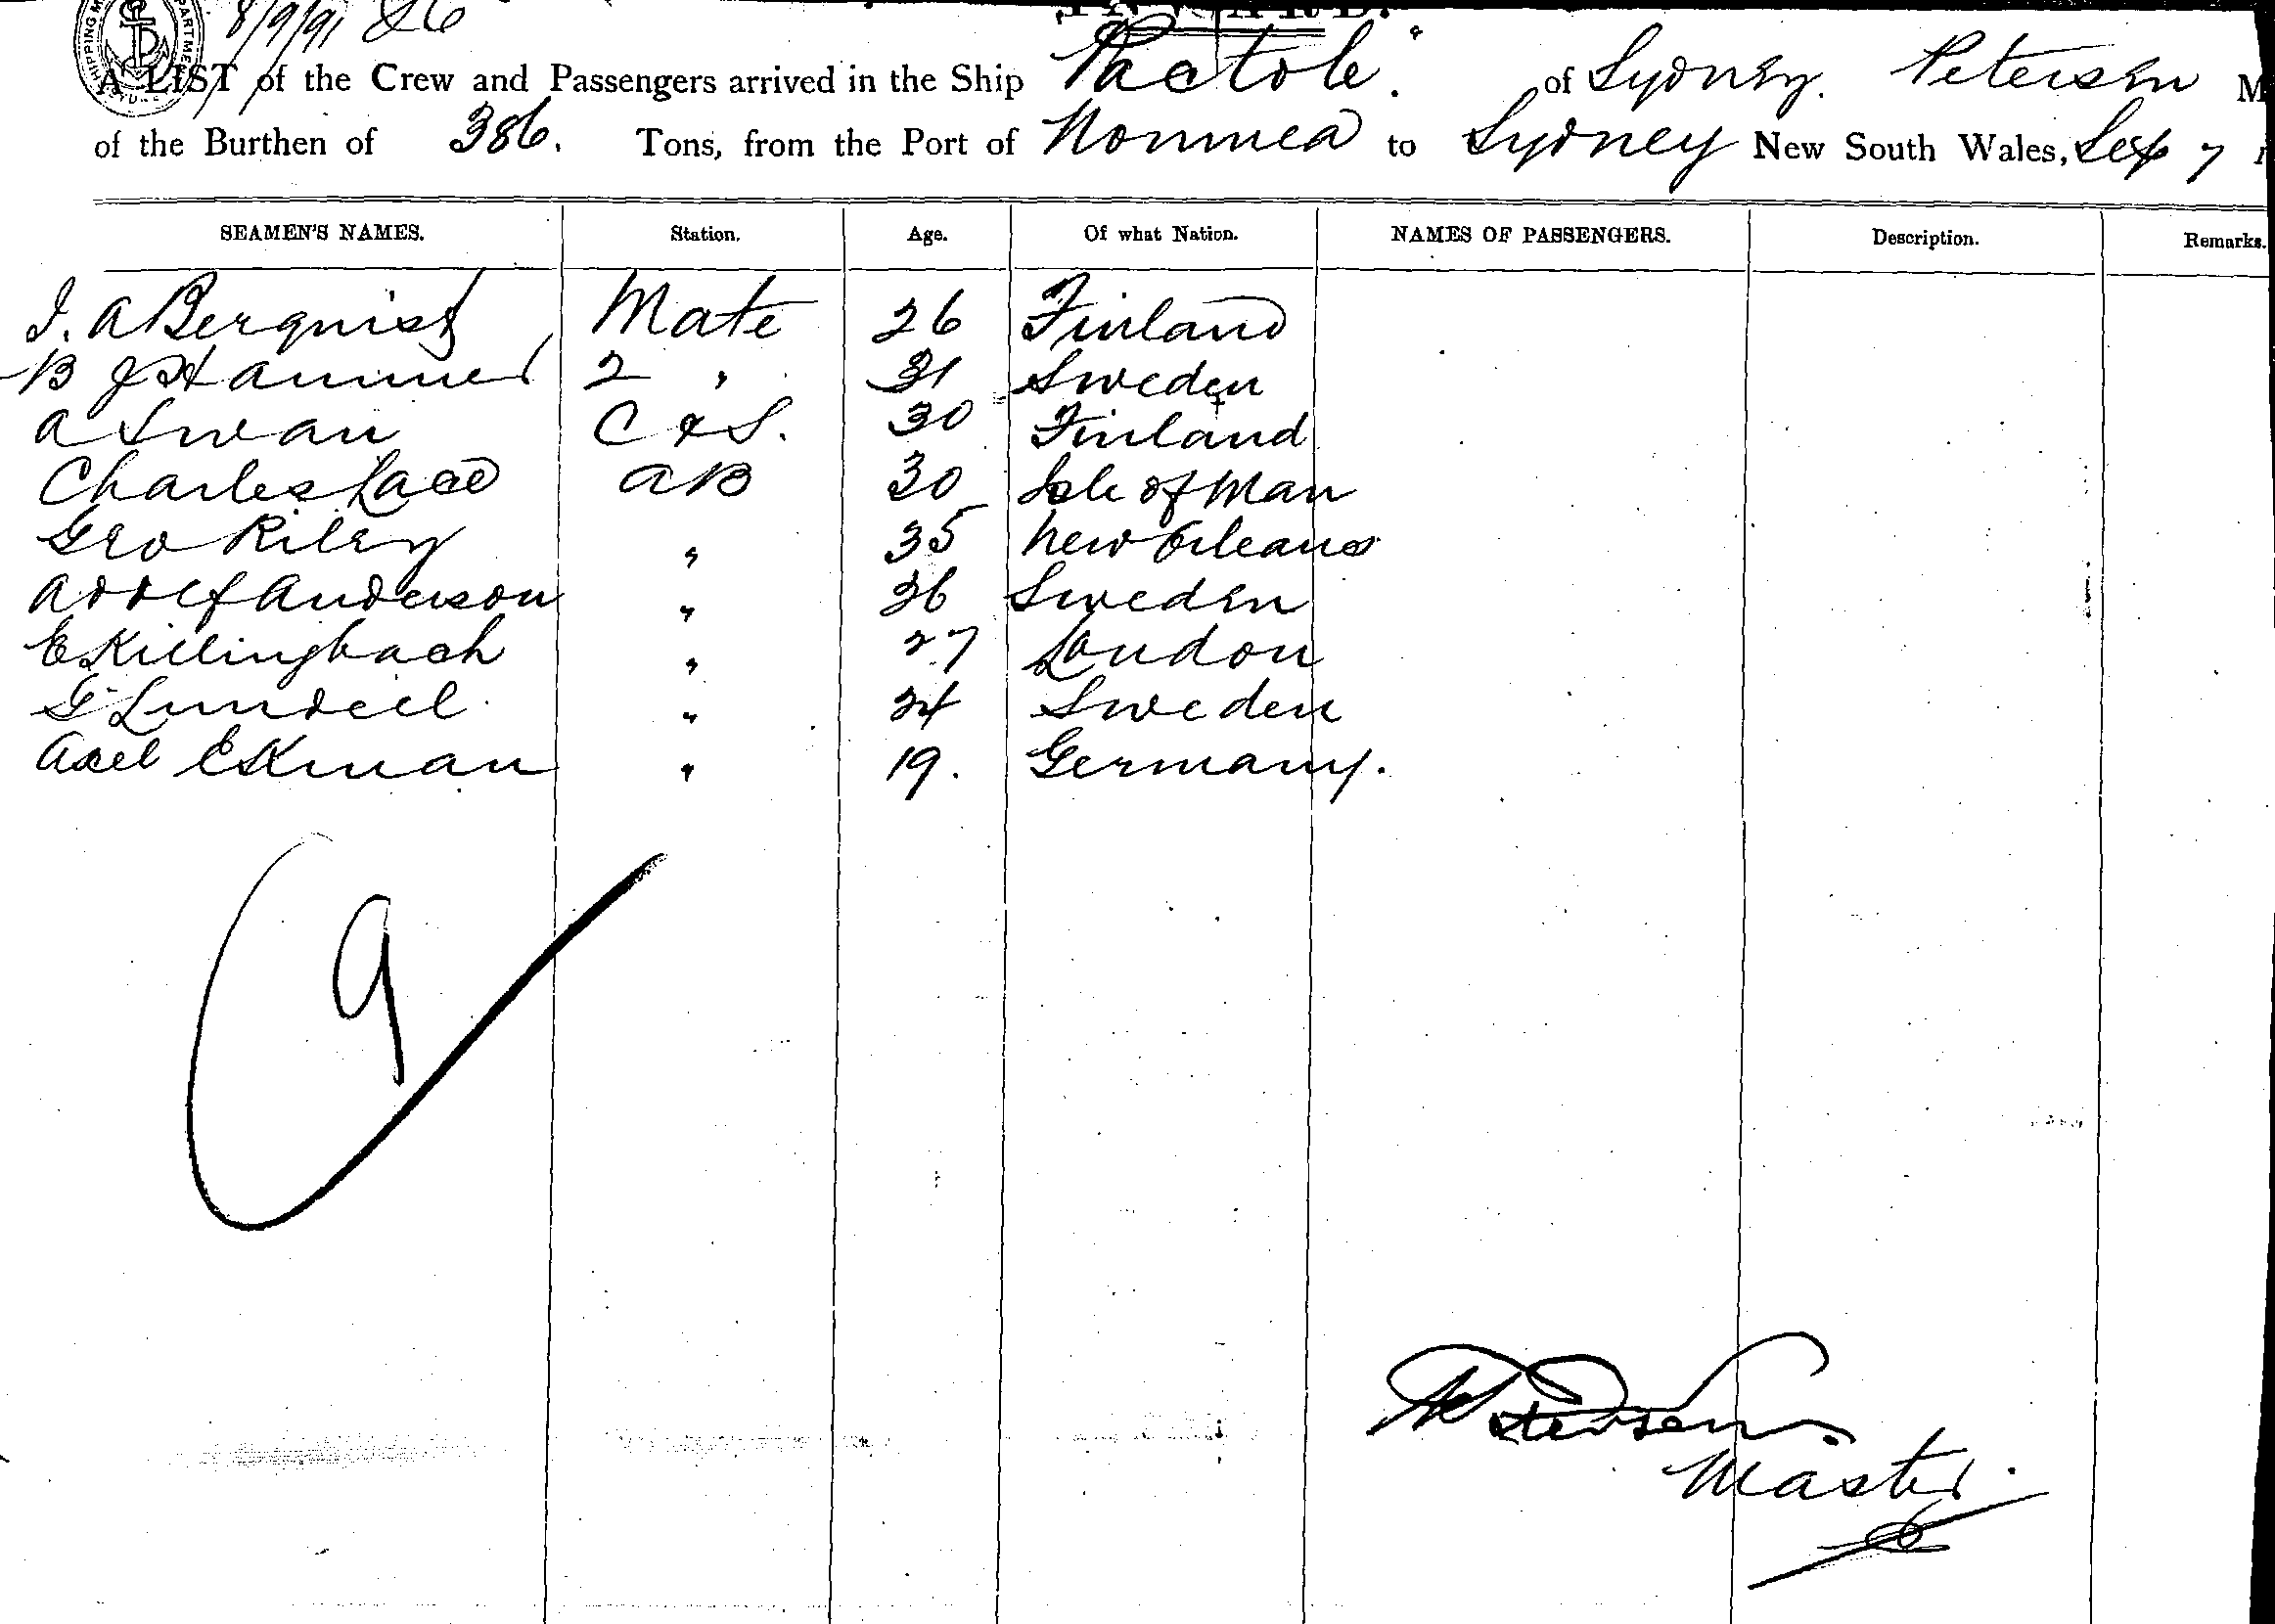 8/9/91 826
A LIST of the Crew and Passengers arrived in the Ship "Pactole" of Sydney. Petersen M
of the Burthen of 386. Tons, from the Port of Noumea to Sydney New South Wales, Sep 7
SEAMEN'S NAMES. Station. Age. Of what Nation. NAMES OF PASSENGERS. Description. Remarks.
J. A Berquist Mate 26 Finland
B J Hammer 2 " 31 Sweden
A Swan C & S. 30 Finland
Charles Lace AB 30 Isle of Man
Geo Riley " 35 New Orleans
Adolf Anderson " 26 Sweden
E Killingback " 27 London
G Lundell " 24 Sweden
Axel Ekman " 19. Germany.
9
Petersen.
Master